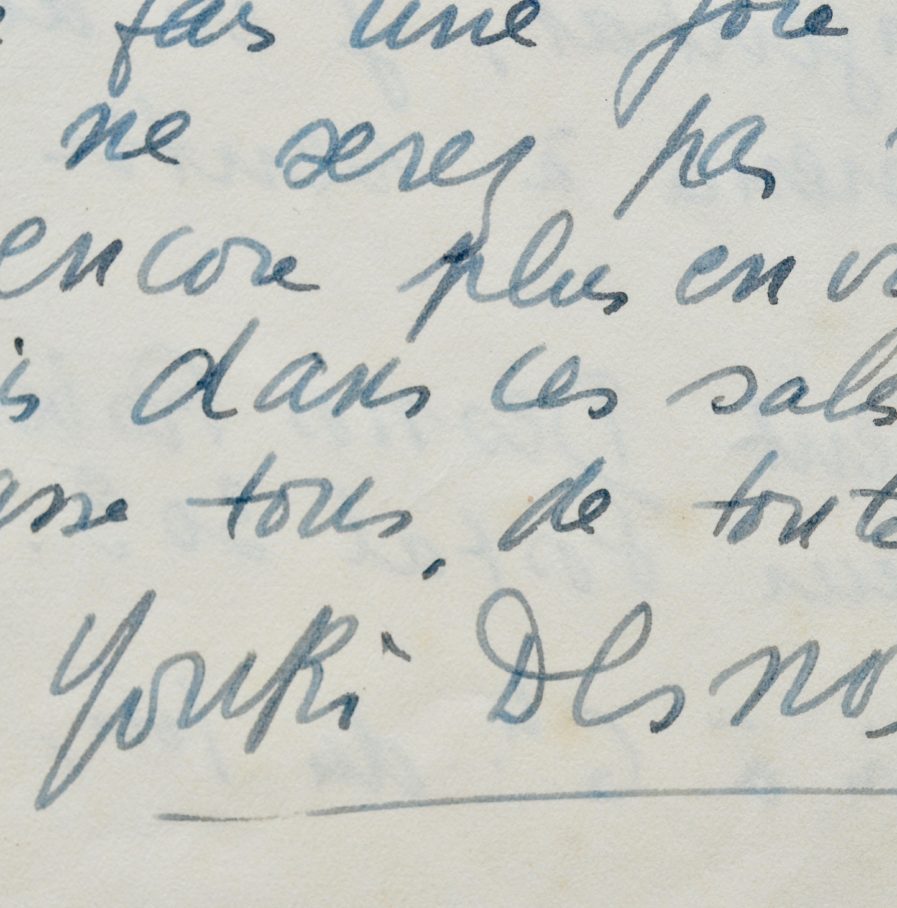 fais une joie
ne serez pas
encore plus en
dans ces sales
tous, de toute
Youki Desnos